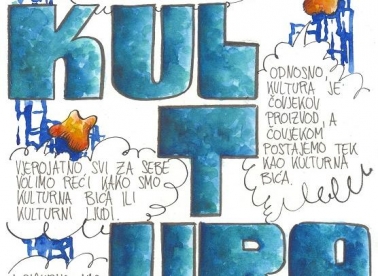 KUL
T
URO
ODNOSNO,
KULTURA JE
ČOVJEKOV
PROIZVOD, A
ČOVJEKOM
POSTAJEMO TEK
KAO KULTURNA
BIĆA.
VJEROJATNO SVI ZA SEBE
VOLIMO REĆI KAKO SMO
KULTURNA BIĆA ILI
KULTURNI LJUDI.